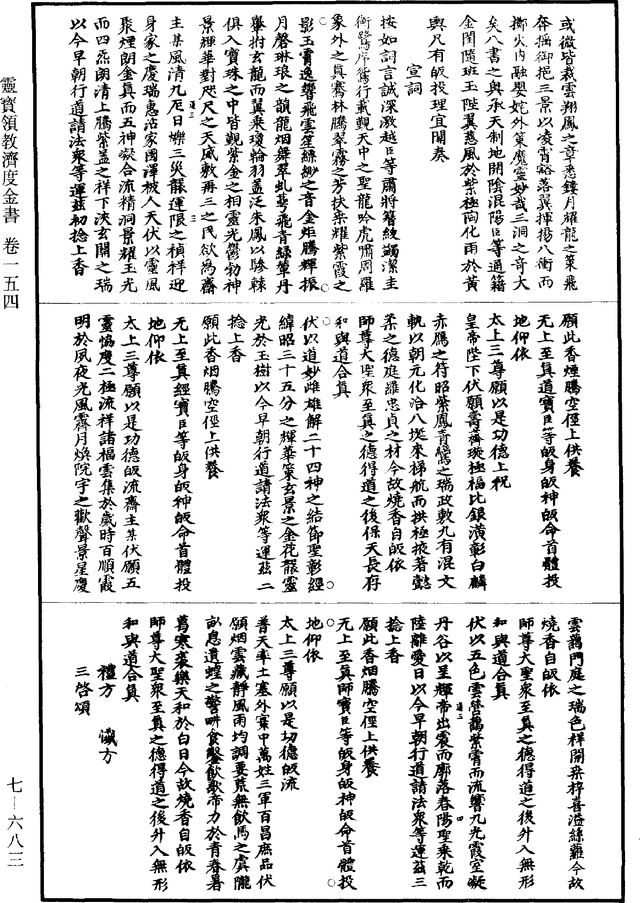 靈寶領教濟度金書 卷一五四
七－六八三
或微皆裁雲翔鳳之章悉鏤月耀龍之策飛
矣八書之與承天制地開陰混陽臣等通籍
金閨隨班玉陛翼慈風於紫極陶化雨於黃
輿凡有皈投理宜開奏
宣詞
按如詞言誠深激越臣等肅將簪紱蠲潔圭
衘鷺序鴛行載觀天中之聖龍吟虎嘯周羅
象外之真騫林騰翠霧之芳扶桒耀紫霞之
影玉霄逸響飛雲星絲緲之音金炬騰輝振
月磬琳琅之韻龍烟舞翠虬蕚飛青綠葷丹
轝拊玄龍而翼乘瓊輪羽蓋泛朱鳳以驂棘
俱入寶珠之中皆觀紫金之相靈光鬱勃神
景輝華對咫尺之天威敷再三之民欲為齋
主某風清九戹日爍三災龍運限之禎祥迎
身家之慶瑞惠洽家國澤被人天伏以靈風
聚煙朗金真而五神凝合流精洞景耀玉光
而四炁朗清上騰紫蓋之祥下浹玄關之瑞
以今早朝行道請法衆等運茲初捻上香
願此香煙騰空徑上供養
无上至真道寶臣等皈身皈神皈命首體投
地仰依
太上三尊願以是功德上祝
皇帝陛下伏願壽齊璇極福比銀潢彰白麟
赤鴈之符昭紫鳳青鸞之瑞政敷九有混文
軌以朝元化洽八埏來梯航而拱極掖著懿
柔之德庭羅忠貞之材今故燒香自皈依
師尊大聖衆至真之德得道之後保天長存
和與道合真
伏以道妙雌雄解二十四神之結節聖彰經
緯昭三十五分之輝華策玄景之金花龍靈
光於玉樹以今早朝行道請法衆等運茲二
捻上香
願此香烟騰空徑上供養
无上至真經寶臣等皈身皈神皈命首體投
地仰依
太上三尊願以是功德皈流齋主某伏願五
靈協度二極流祥諸福雲集於歲時百順霞
明於夙夜光風霽月煥院宇之歡聲景星慶
雲藹門庭之瑞色祥開桒梓喜溢絲蘿今故
燒香自皈依
師尊大聖衆至真之德得道之後升入無形
和與道合真
伏以五色雲營藹紫霄而流響九光霞室凝
丹谷以呈輝帝出震而廓落春陽聖乘乾而
陸離愛日以今早朝行道請法衆等運茲三
捻上香
願此香烟騰空徑上供養
无上至真師寶臣等皈身皈神皈命首體投
地仰依
太上三尊願以是功德皈流
普天率土塞外寰中萬姓三軍百昌庶品伏
願烟雲藏靜風雨均調要荒無飲馬之虞隴
畝息遺蝗之警畊食鑿飲歌帝力於青春暑
葛寒裘樂天和於白日今故燒香自皈依
師尊大聖衆至真之德得道之後升入無形
和與道合真
禮方 懺方
三啓頌